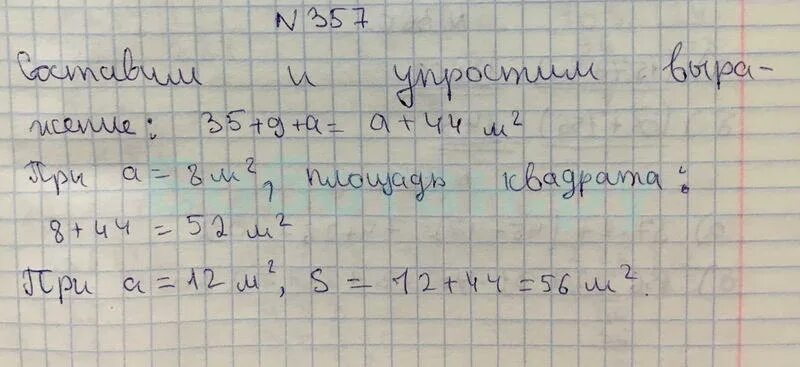 N 357
Составим и упростим выра-
жение: 35+9+a= a+44 м²
При a = 8 м², площадь квадрата:
8+44 = 52 м²
При a = 12 м², S = 12+44 = 56 м².